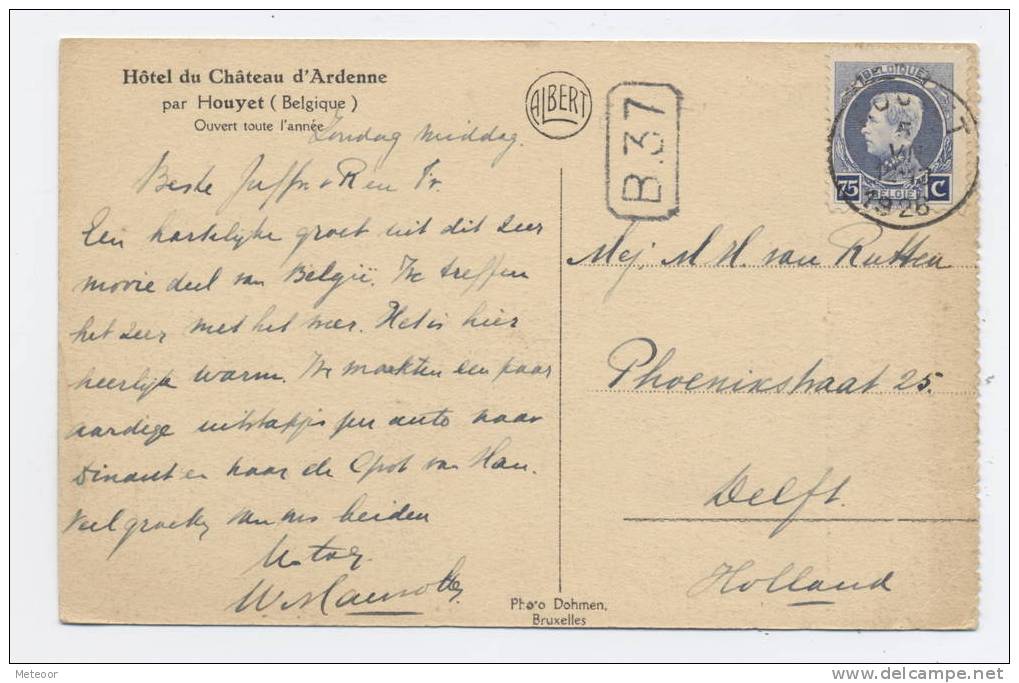 Hôtel du Château d'Ardenne
par Houyet ( Belgique )
Ouvert toute l'année
Zondag middag.
Beste Juffr. v
Een hartelijke groet uit dit zeer
mooie deel van België. We treffen
het zeer met het weer. Het is hier
heerlijk warm. We maakten een paar
aardige uitstapjes per auto naar
Dinant en naar de Grot van Han.
Veel groeten van ons beiden
ALBERT
B.37
BELGIQUE
75 C
BELGIË
1926
Mej. M H. van Rutten
Phoenixstraat 25.
Delft.
Holland
Photo Dohmen,
Bruxelles
Meteoor
www.delcampe.net